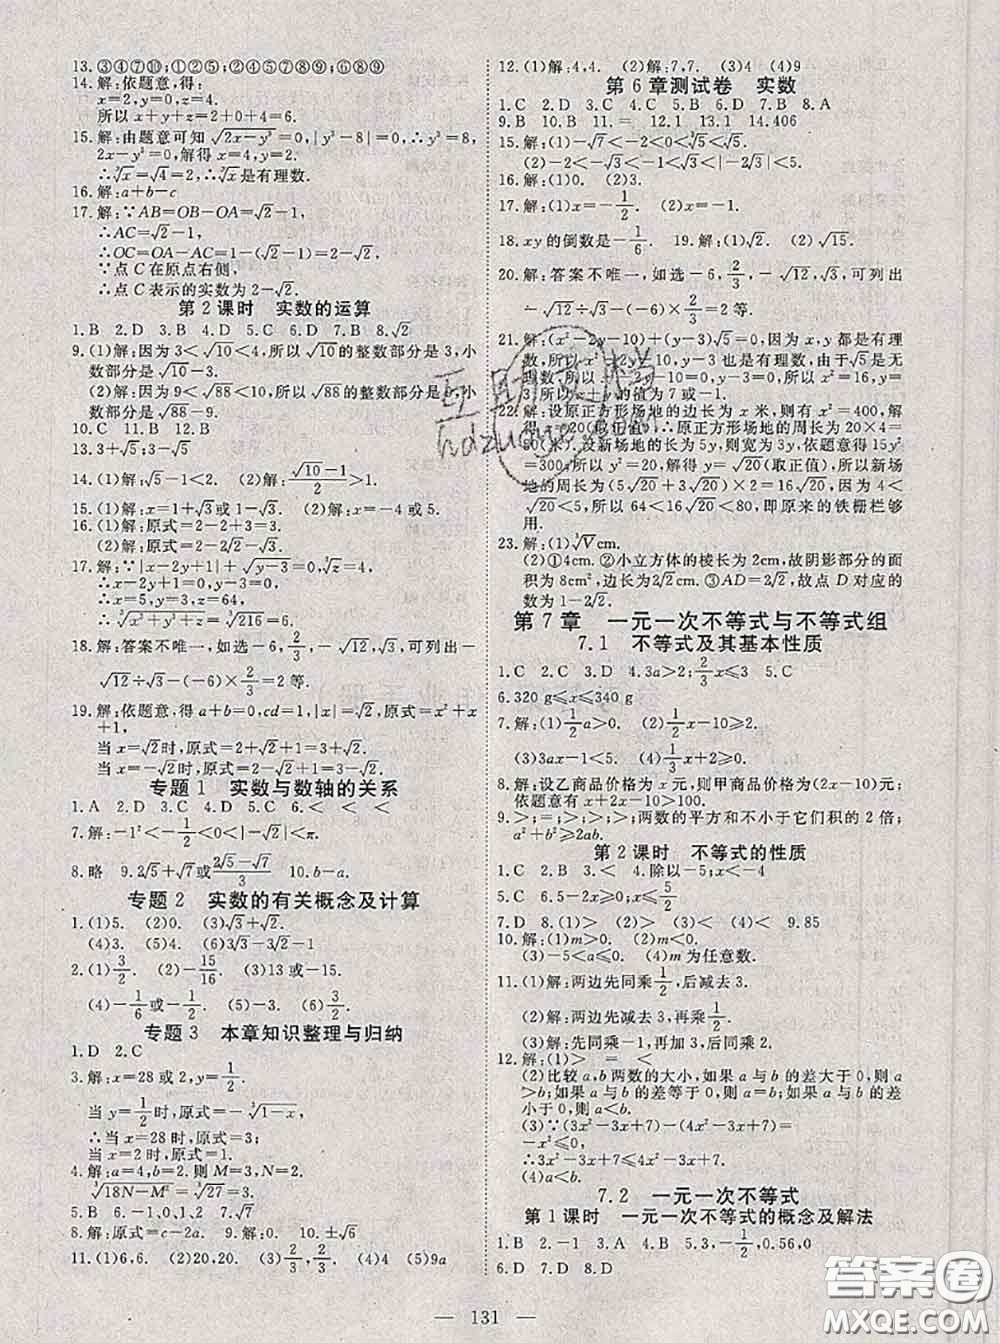 13.③④⑦⑩;①②⑤;②④⑤⑦⑧⑨;⑥⑧⑨
14.解:依题意,得:
x=2,y=0,z=4.
所以x+y+z=6.
15.解:由题意可知√(2x-y³)=0,|y³-8|=0,∴y³=8,
2x-y³=0,解得x=4.
∴∛x=√4=2,∴∛x是有理数.
16.解:a+b-c
17.解:∵AB=OB-OA=√2-1,
∴AC=√2-1,
∴OC=OA-AC=1-(√2-1)=2-√2.
∵点C在原点右侧,
∴点C表示的实数为2-√2.
第2课时 实数的运算
1.B 2.D 3.B 4.D 5.C 6.B 7.B 8.√2
9.(1)解:因为3<√10<4,所以√10的整数部分是3,小
数部分是√10-3.
(2)解:因为9<√88<10,所以√88的整数部分是9,小
数部分是√88-9.
10.C 11.B 12.B
13.3+√5;3-√5
14.(1)解:√5-1<2. (2)解:(√10-1)/2>1.
15.(1)解:x=1+√3或1-√3. (2)解:x=-4或5.
16.(1)解:原式=2-2+3=3.
(2)解:原式=2-2-√3=-√3.
17.解:∵|x-2y+1|+|x+y-8|+√(z-2y)=0,
∴x-2y+1=0,x+y-8=0,z-2y=0,
∴x=5,y=3,z=6,
∴∛(x²+y³+z)=∛216=6.
18.解:答案不唯一,如选-6,2/3,-√12,√3,可列出
-√12÷√3-(-6)×2/3=2等.
19.解:依题意,得a+b=0,cd=1,|x|=√2,原式=x²+x
+1,
当x=√2时,原式=√2+3.
当x=-√2时,原式=-√2+3.
专题1 实数与数轴的关系
1.A 2.D 3.C 4.D 5.C 6.< < < <
7.解:-1²<-1/2<0<|√3|<π.
8.略 9.2√5+√7或(2√5-√7)/3 10.b-a
专题2 实数的有关概念及计算
1.(1)5. (2)0. (3)√3+√2.
(4)3. (5)4. (6)3√3-3√2-√5
2.(1)3/2. (2)-15/16. (3)13或-15.
(4)-1/6或-1/2. (5)1. (6)3/2.
专题3 本章知识整理与归纳
1.D 2.C
3.解:x=28或2,y=1/2.
当y=1/2时,原式=-∛(1-x),
∴当x=28时,原式=3;
当x=2时,原式=1.
4.解:a=4,b=2.则M=3,N=2.
∛(18N-M²)=∛27=3.
5.B 6.-1,0,1,2 7.√7
8.解:原式=c-2a. 9.解:±√6
11.(1)6,6. (2)20,20. (3)2/3,2/3. (4)4 (5)9a
12.(1)解:4,4. (2)解:7,7. (3)4 (4)9
第6章测试卷 实数
1.C 2.D 3.C 4.D 5.D 6.D 7.B 8.A
9.B 10.B 11.= 12.1 13.1 14.406
15.解:(1)-√7<-2<0<∛5<√5.
(2)-2<-√3<-1<|-√3|<|-2|<5.
16.解:(1)0. (2)3.
17.解:(1)x=-1/2. (2)x=-1.
18.xy的倒数是-1/6. 19.解:(1)√2. (2)√15.
20.解:答案不唯一,如选-6,2/3,-√12,√3,可列出
-√12÷√3-(-6)×2/3=2等.
21.解:(x²-2y-10)+(y-3)√5=0,因为x,y都是有理
数,所以x²-2y-10,y-3也是有理数,由于√5是无
理数,所以x²-2y-10=0,y-3=0,解得x=±4,y=
3,所以x+y的值为7或-1.
22.解:设原正方形场地的边长为x米,则有x²=400,解
得x=20(取正值).∴原正方形场地的周长为20×4=
80,设新场地的长为5y,则宽为3y,依题意得15y²
=300,所以y²=20,解得y=√20(取正值),所以新场
地的周长为(5√20+3√20)×2=16√20,因为4<√20
<5,所以64<16√20<80,即原来的铁栅栏够
用.
23.解:(1)∛V cm.
(2)①4cm. ②小立方体的棱长为2cm,故阴影部分的面
积为8cm²,边长为2√2cm. ③AD=2√2,故点D对应的
数为1-2√2.
第7章 一元一次不等式与不等式组
7.1 不等式及其基本性质
1.C 2.D 3.D 4.3a>2;2/3x≤3 5.C
6.320 g≤x≤340 g
7.解:(1)1/2a>0. (2)1/2x-10≥2.
(3)3ax-1<5. (4)1/3x+2≤0.
8.解:设乙商品价格为x元,则甲商品价格为(2x-10)元;
依题意有x+2x-10>100.
9.>;=;>;>;两数的平方和不小于它们积的2倍;
a²+b²≥2ab.
第2课时 不等式的性质
1.C 2.B 3.< 4.除以-5;x<-4
5.C 6.5-2x≥0;x≤5/2
7.D 8.(1)> (2)> (3)< (4)< 9.85
10.解:(1)m>0. (2)m<0.
(3)-5<a≤0. (4)m为任意数.
11.(1)解:两边先同乘1/2,后减去3.
(2)解:两边先减去3,后同乘1/2.
(3)解:先同乘-1,再加3,再同乘1/2.
12.解:(1)> = <
(2)比较a,b两数的大小,如果a与b的差大于0,则a
>b;如果a与b的差等于0,则a=b;如果a与b的差
小于0,则a<b.
(3)∵(3x²-3x+7)-(4x²-3x+7)=
-x²≤0,
∴3x²-3x+7≤4x²-3x+7.
(4)a<b.
7.2 一元一次不等式
第1课时 一元一次不等式的概念及解法
1.B 2.-1 3.A 4.B 5.3,-1/2,0.56,0
6.D 7.D 8.D
— 131 —
答案圈
MXQE.COM